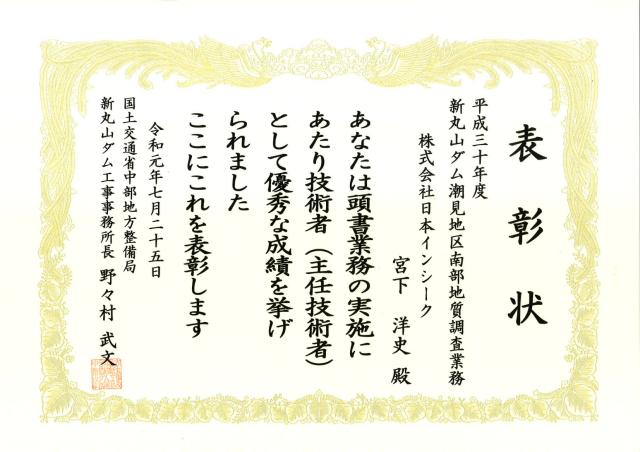 表彰状
平成三十年度
新丸山ダム潮見地区南部地質調査業務
株式会社日本インシーク
宮下 洋史 殿
あなたは頭書業務の実施に
あたり技術者(主任技術者)
として優秀な成績を挙げ
られました
ここにこれを表彰します
令和元年七月二十五日
国土交通省中部地方整備局
新丸山ダム工事事務所長 野々村 武文